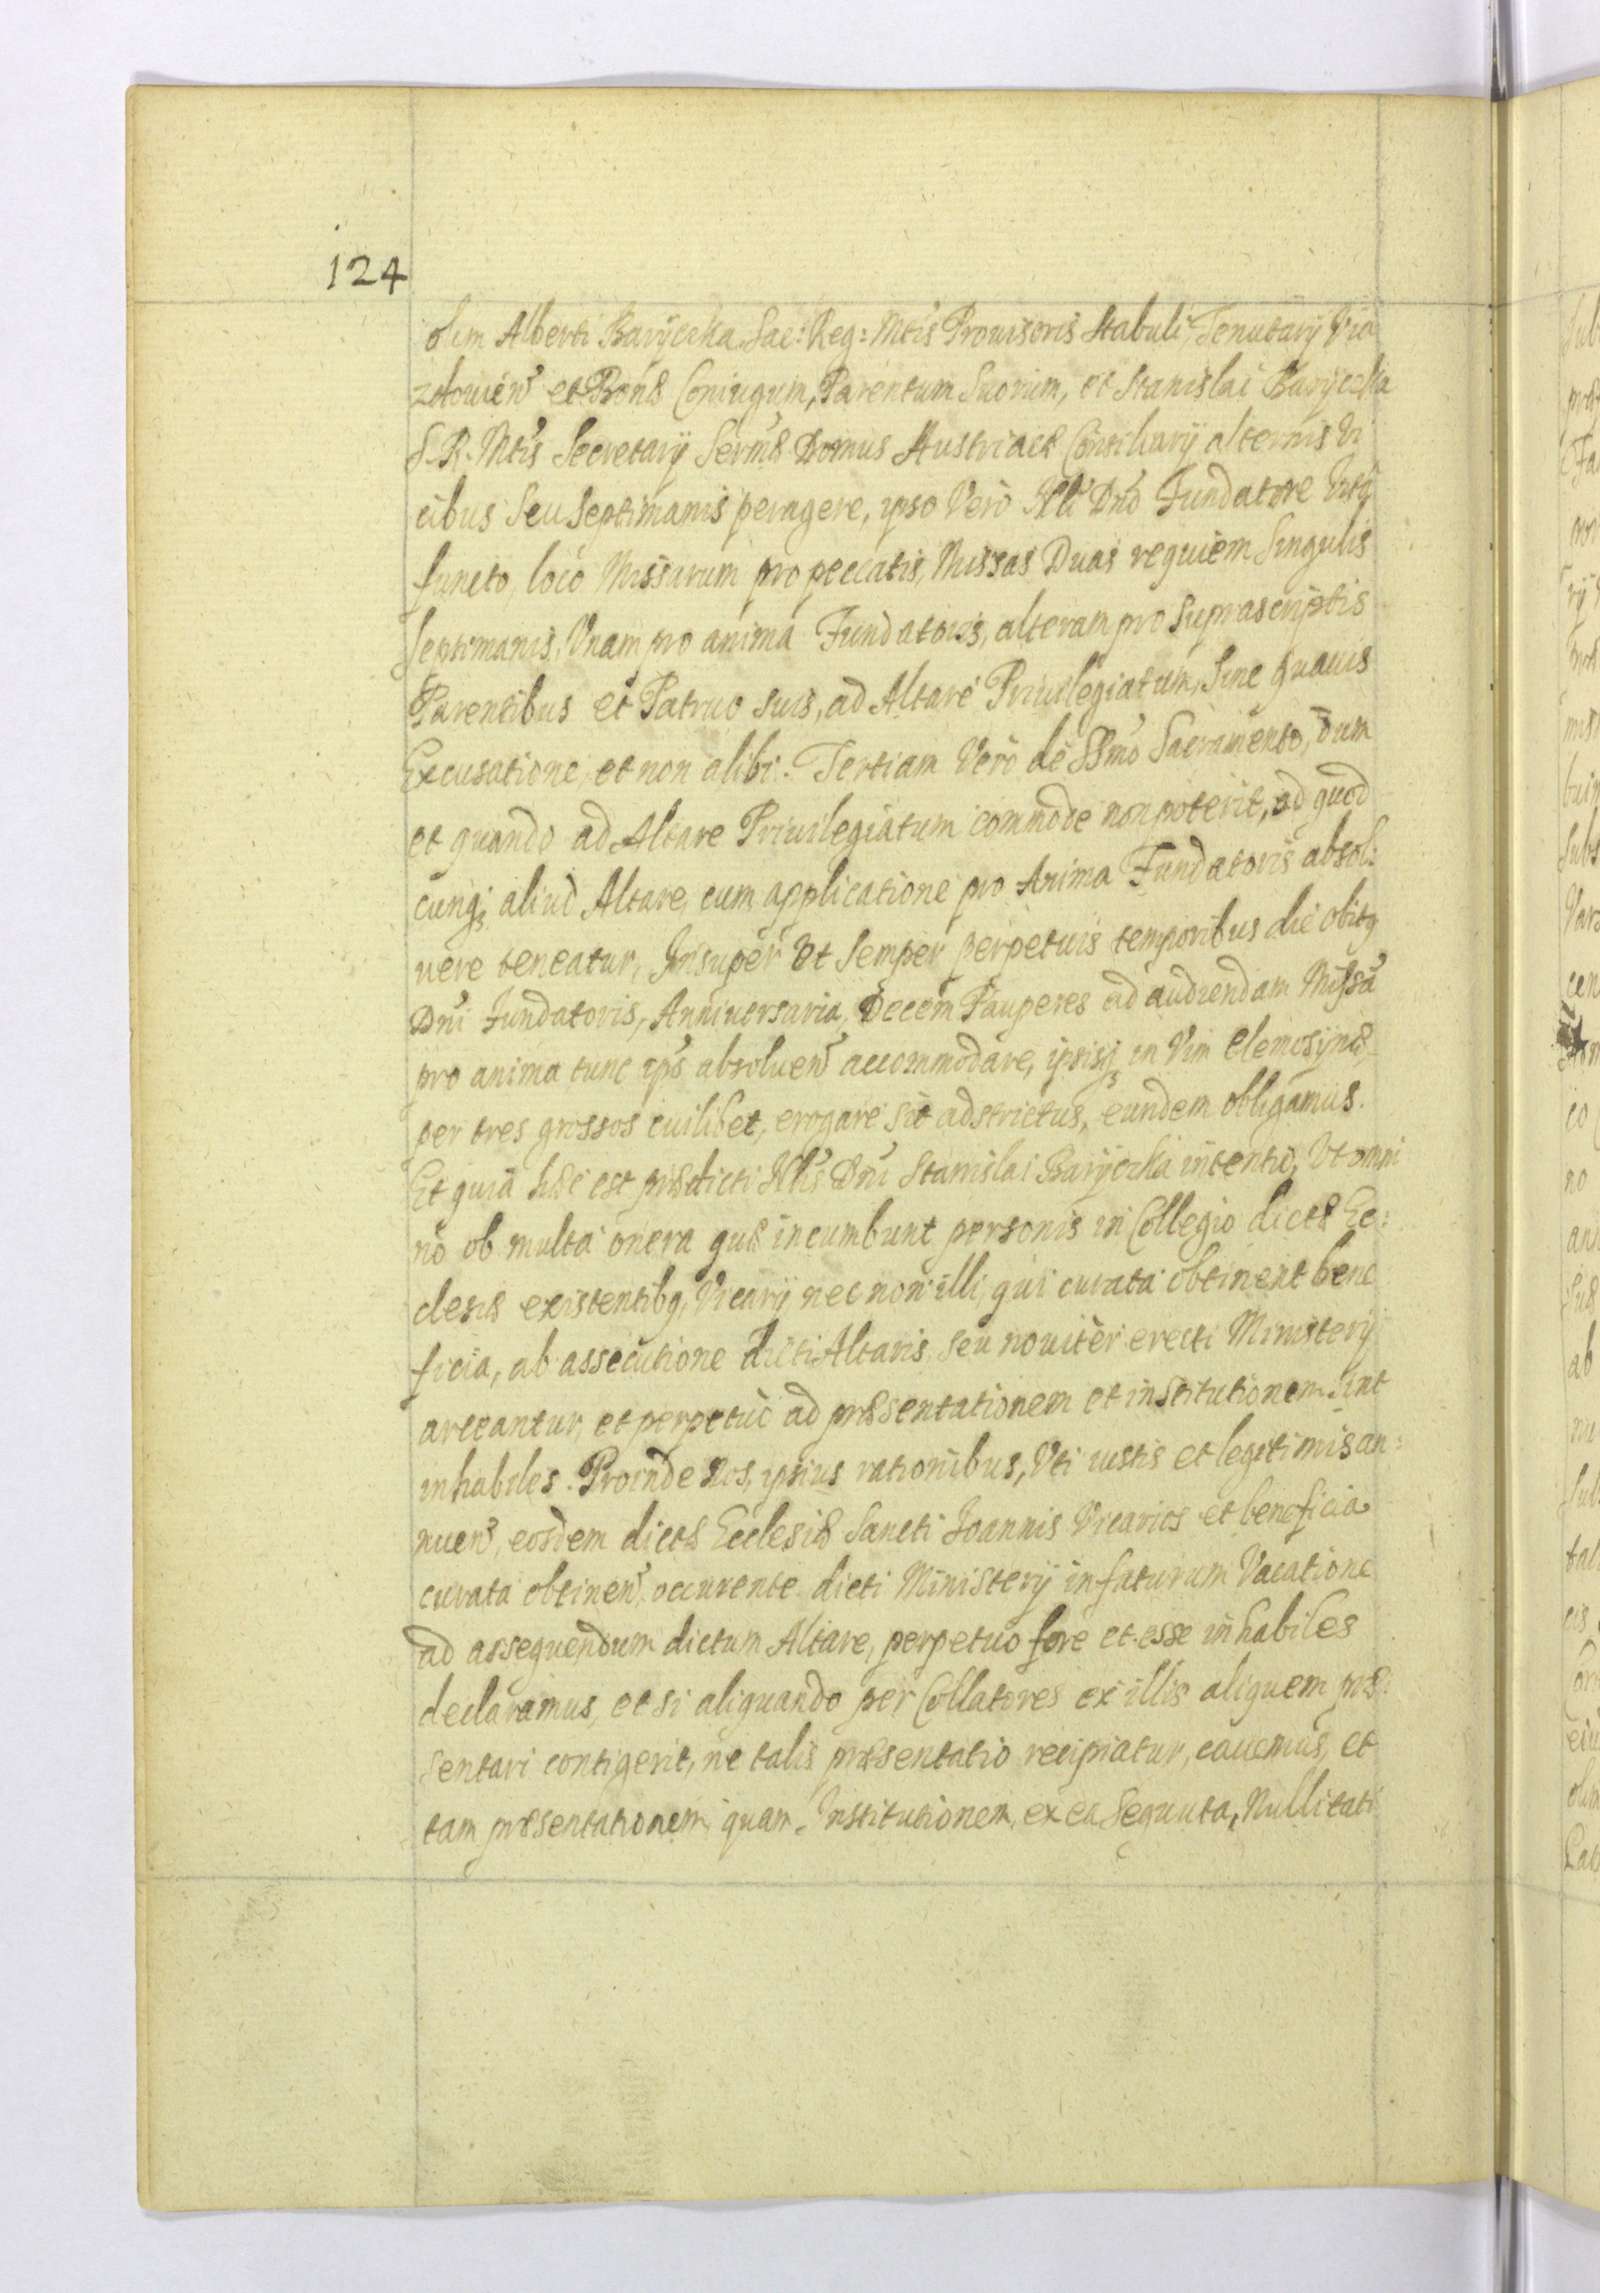 124
olim Alberti Barÿczka Sac: Reg: Mtis Prouisoris Stabuli, Tenutarÿ Via
zdouien̄ et Bonæ Coniugum, Parentum Suorum, et Stanislai Barÿczka
S. R. Mtis Secretarÿ Sermæ Domus Austriacæ Consiliarÿ alternis Vi
cibus Seu Septimanis peragere, ipso Vero Dno Fundatore Vitq
functo, loco Missarum pro peccatis, Missas Duas requiem Singulis
Septimanis, Vnam pro anima Fundatoris, alteram pro Suprascriptis
Parentibus et Patruo suis, ad Altare Priuilegiatum, Sine quauis
Excusatione, et non alibi. Tertiam Vero de SSmo Sacramento, dum
et quando ad Altare Priuilegiatum commode non poterit, ad quod
cunq; aliud Altare, cum applicatione pro Anima Fundatoris absol:
uere teneatur, Insuper Vt Semper perpetuis temporibus die obitq
Dni Fundatoris, Anniuersaria, Decem Pauperes ad audiendam Missā
pro anima tunc ips absoluen̄ accommodare, ipsisq; in Vim elemosÿnæ
per tres grossos cuilibet, erogare sit adstrictus, eundem obligamus.
Et quia hæc est prædicti Dni Stanislai Barÿczka intentio, Vt omni
no ob multa onera quæ incumbunt personis in Collegio dictæ Ec:
clesiæ existentibq, Vicarÿ nec non illi, qui curata obtinent bene
ficia, ab assecutione dicti Altaris, seu nouiter erecti Ministerÿ
arceantur, et perpetuo ad præsentationem et institutionem sint
inhabiles. Proinde Nos, ipsius rationibus, Vti iustis et legitimis an:
nuen̄, eosdem dictæ Ecclesiæ Sancti Joannis Vicarios et beneficia
curata obtinen̄, occurente dicti Ministerÿ in futurum Vacatione
ad assequendum dictum Altare, perpetuo fore et esse inhabiles
declaramus, et si aliquando per Collatores ex illis aliquem præ:
sentari contigerit, ne talis præsentatio recipiatur, cauemus, et
tam præsentationem, quam Institutionem, ex ea Sequuta, Nullitati